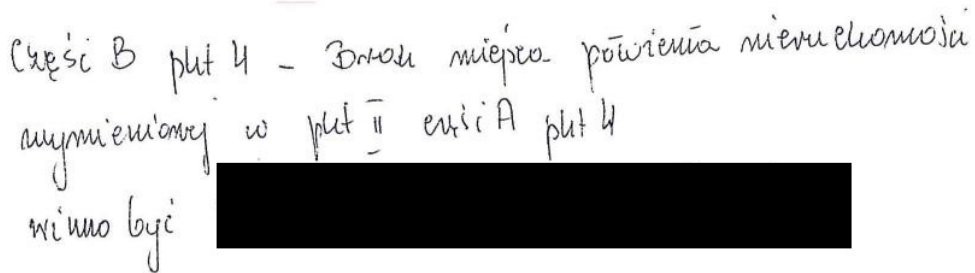 Część B pkt 4 - Brak miejsca położenia nieruchomości
wymienionej w pkt II części A pkt 4
winno być